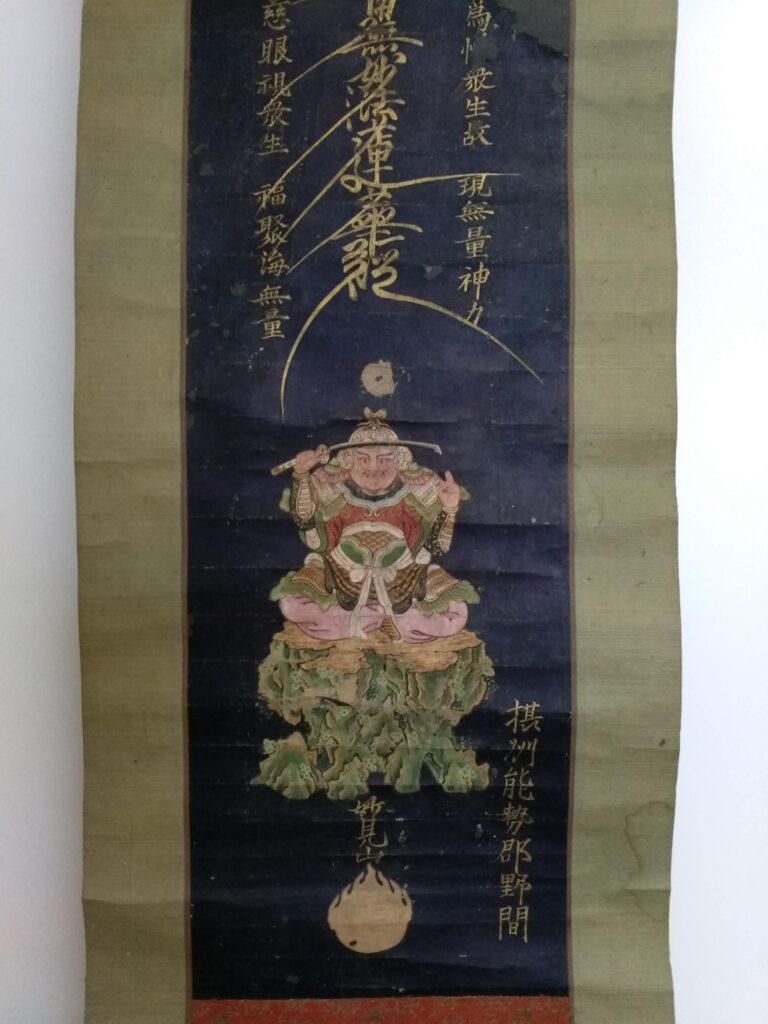 為悦衆生故　現無量神力
南無妙法蓮華経
慈眼視衆生　福聚海無量
摂州能勢郡野間
妙見山